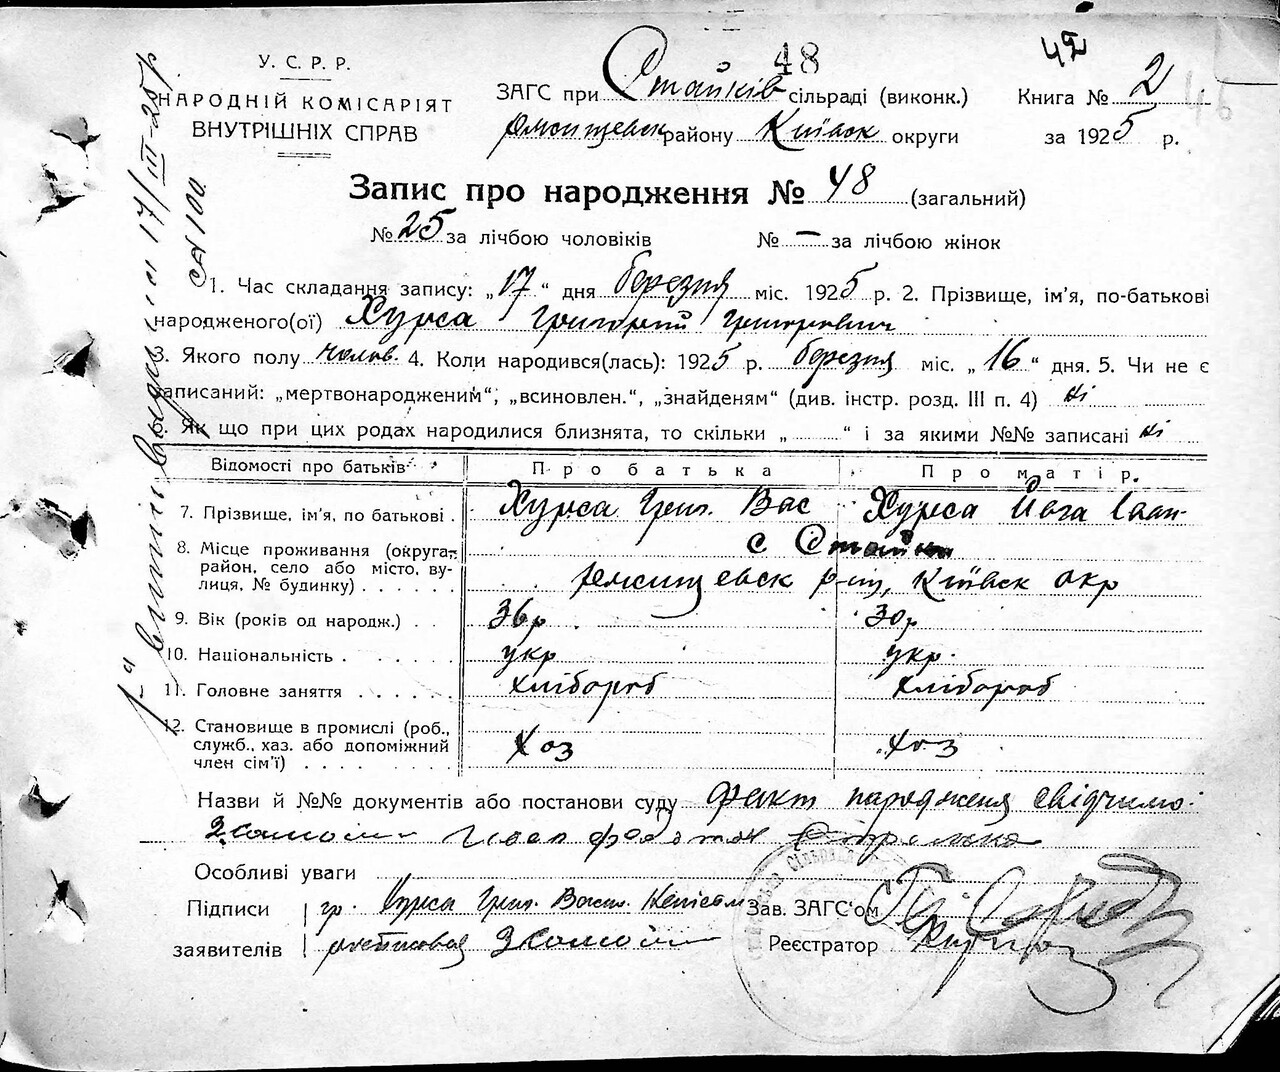 48
42
У. С. Р. Р.
НАРОДНІЙ КОМІСАРІЯТ
ВНУТРІШНІХ СПРАВ
ЗАГС при Стайків сільраді (виконк.)
району Київск округи
Книга № 2
за 1925 р.
Запис про народження № 48 (загальний)
№ 25 за лічбою чоловіків № — за лічбою жінок
1. Час складання запису: „17“ дня березня міс. 1925 р. 2. Прізвище, ім'я, по-батькові
народженого(ої) Хурса Григорий Григорович
3. Якого полу чолов. 4. Коли народився(лась): 1925 р. березня міс. „16“ дня. 5. Чи не є
записаний: „мертвонародженим“, „всиновлен.“, „знайденям“ (див. інстр. розд. III п. 4) ні
Як що при цих родах народилися близнята, то скільки „ “ і за якими №№ записані ні
Відомості про батьків Про батька Про матір.
7. Прізвище, ім'я, по батькові . Хурса Григ. Вас Хурса Йвга Іван-
8. Місце проживання (округа, район, село або місто, вулиця, № будинку) . . . . . . с Стайки
р-ну, Київск окр
9. Вік (років од народж.) . . 36 р 30 р
10. Національність . . . . . . укр укр.
11. Головне заняття . . . . . . хлібороб хлібороб
12. Становище в промислі (роб., служб., хаз. або допоміжний член сім'ї) . . . . . . . . хоз хоз
Назви й №№ документів або постанови суду факт народженя свідчимо:
Особливі уваги
Підписи гр. Хурса Григ. Васил. Зав. ЗАГС'ом
заявителів Реєстратор
17/III-25 р.